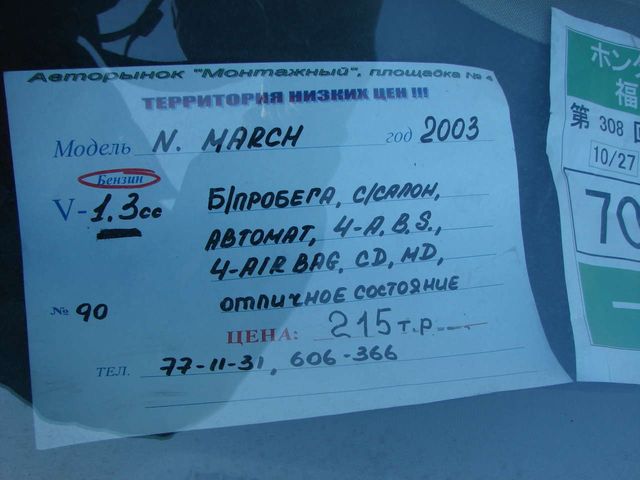 Авторынок "Монтажный", площадка № 4
ТЕРРИТОРИЯ НИЗКИХ ЦЕН !!!
Модель N. MARCH год 2003
Бензин
V-1,3cc Б/ПРОБЕГА, С/САЛОН,
АВТОМАТ, 4-A.B.S.,
4-AIR BAG, CD, MD,
№ 90 ОТЛИЧНОЕ СОСТОЯНИЕ
ЦЕНА: 215 т.р.
ТЕЛ. 77-11-31, 606-366
ホン
福
第 308 回
10/27
70